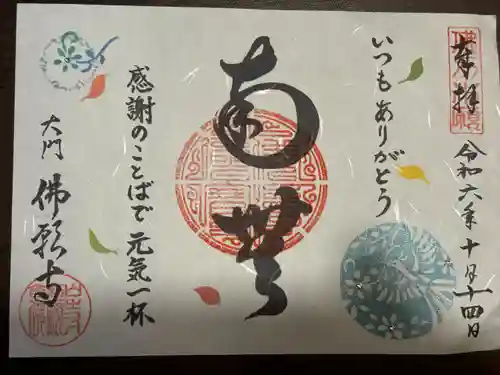 奉拝
令和六年十月十四日
いつもありがとう
南無
感謝のことばで元気一杯
大門
佛願寺